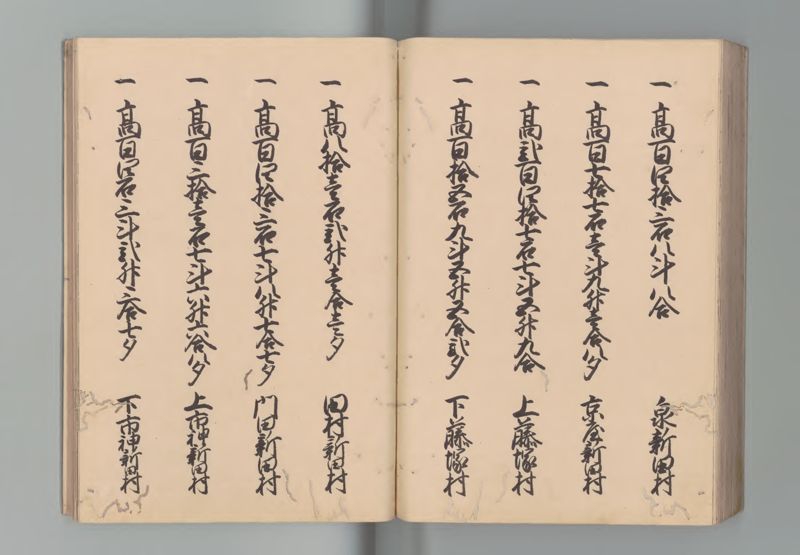 一 高百四拾三石八斗八合 泉新田村
一 高百七拾七石壱斗九升壱合八夕 京屋新田村
一 高弐百四拾七石七斗五升九合 上藤塚村
一 高百拾五石九斗五升五合弐夕 下藤塚村
一 高八拾壱石弐升壱合壱夕 田村新田村
一 高百四拾三石七斗八升七合七夕 門田新田村
一 高百三拾壱石七斗六升六合八夕 上市神新田村
一 高百四石三斗弐升三合七夕 下市神新田村